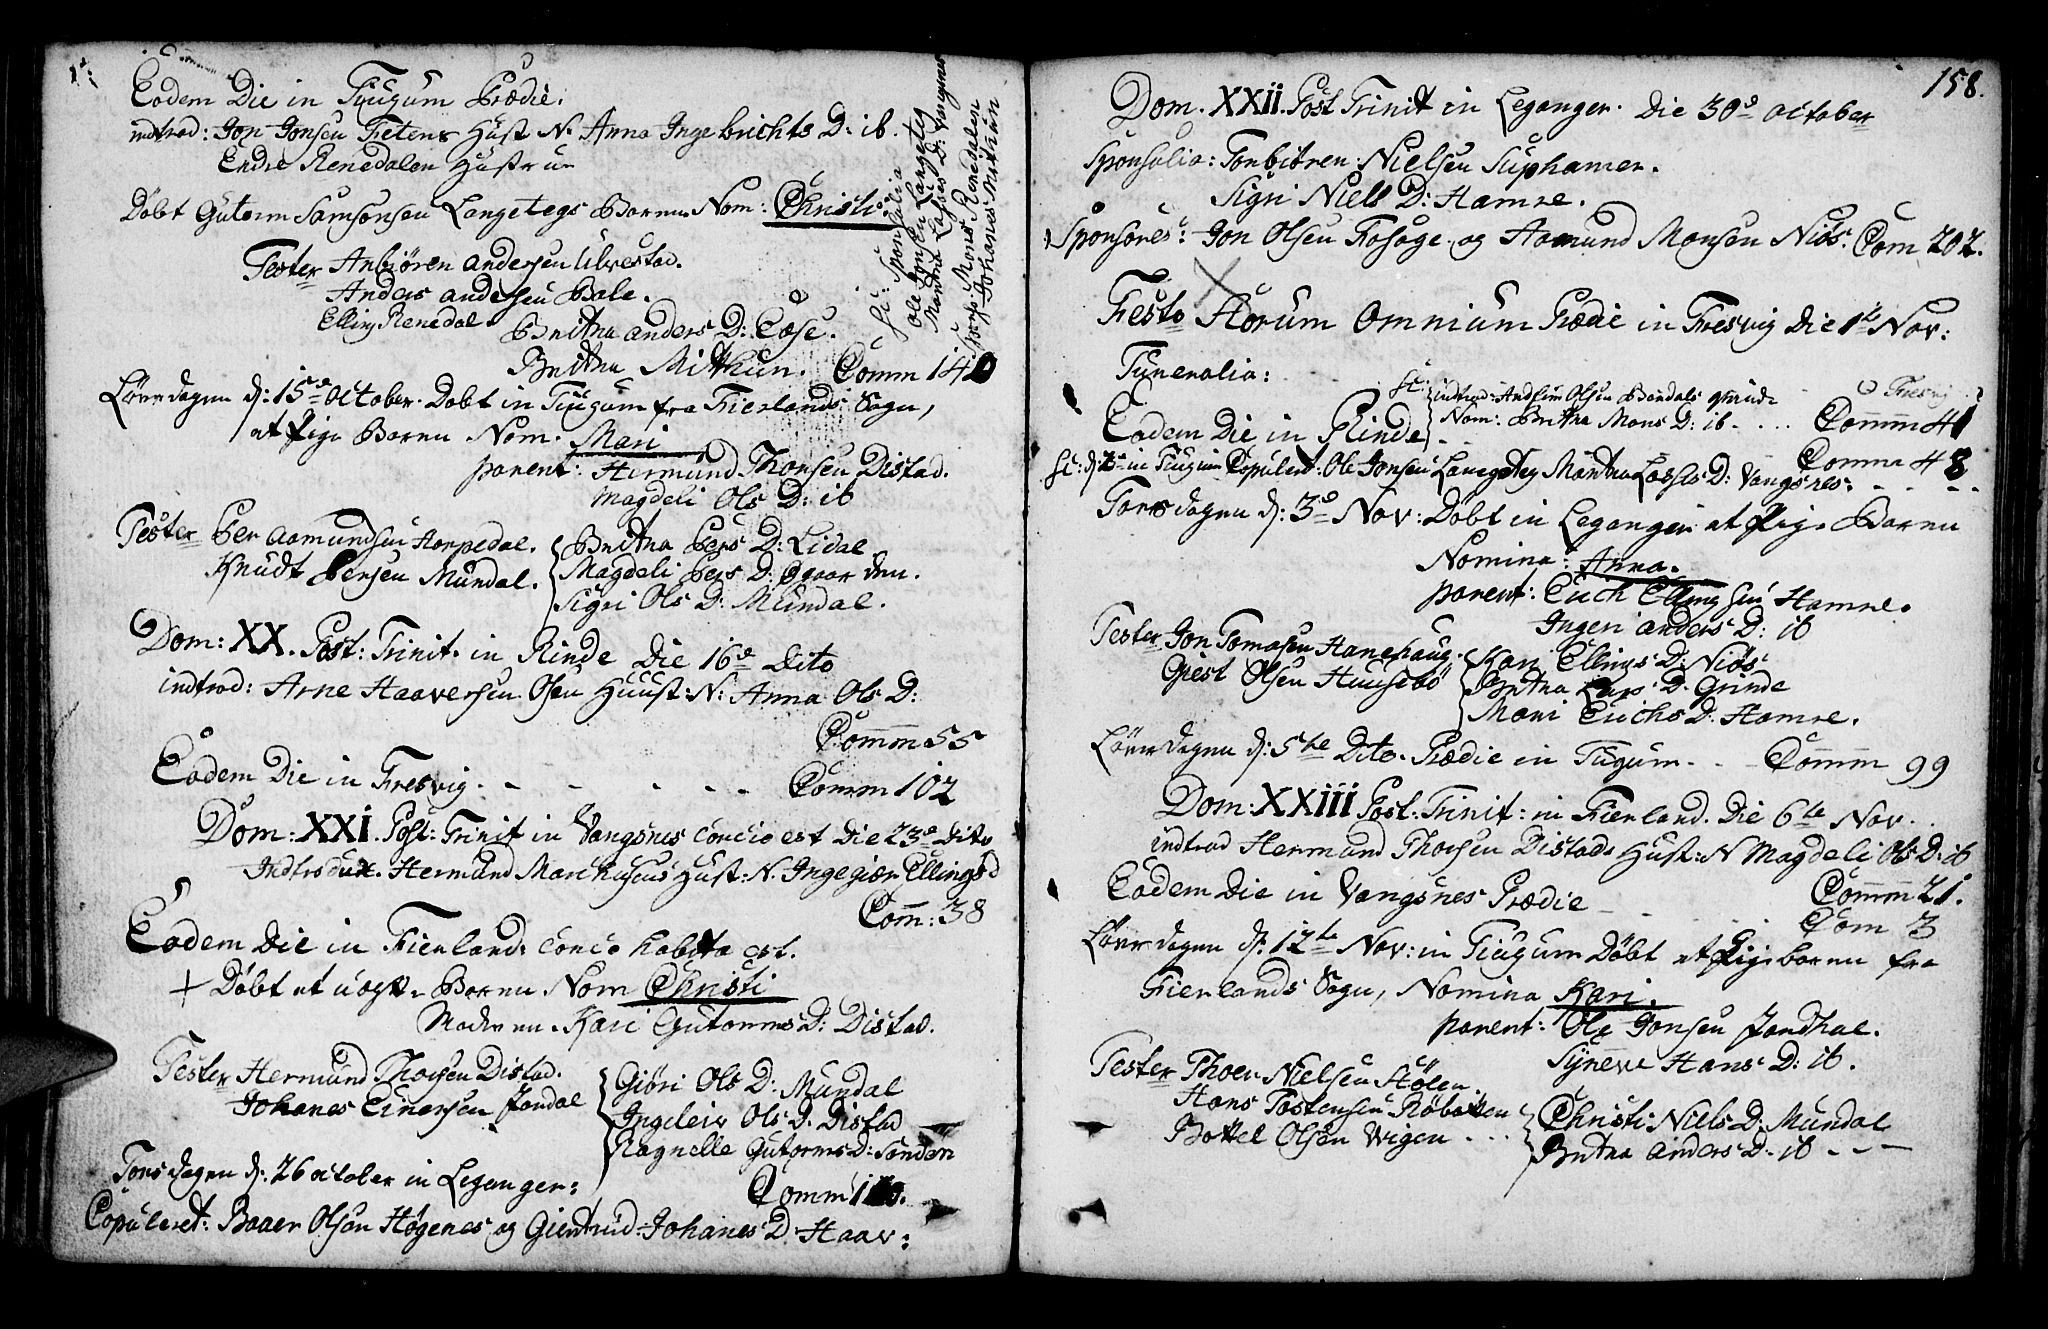 Eodem Die in Tiugum Prædie.
indtrod: Jon Jonsen Fetens Hust N. Anna Ingebrichts D: ib.
Endre Renedalen Hustrue
Döbt Gutorm Samsonsen Langetegs Barn Nom: Christi
Tester Anbiören andersen Ulvestad.
Anders andersen Bale.
Elling Renedal. Britha anders D: Case.
Britha Mithun. Comm 140
sc: Sponsalia
Ole Jonsen Langeteg
Martha Lasses D: Vangsnes
Spons: Mons Renedalen
Johanes Mitun
Löverdagen d: 15de October. Döbt in Tiugum fra Fierlands Sogn,
et Pige Barn Nom. Mari
parent: Hermund Thorsen Distad.
Magdeli Ols D: ib
Tester Per Aamundsen Horpedal.
Knudt Persen Mundal.
Britha Pers D: Lidal
Magdeli Pers D: Ögaarden.
Sigri Ols D: Mundal.
Dom: XX. Post: Trinit. in Rinde Die 16de Dito
indtrod: Arne Haaversen Osen Huust: N: Anna Ols D:
Comm 55
Eodem Die in Fresvig. - - - - - Comm 102
Dom: XXI. Post: Trinit in Vangsnes Concio est Die 23de Dito
Indtroduxt. Hermund Marchusens Hust: N. Ingegiær Ellings D
Com: 38
Eodem Die in Fierlands Concio habita est.
+ Döbt et uægte Barn. Nom Christi
Moderen. Kari Gutorms D: Distad.
Tester Hermund Thorsen Distad.
Johanes Einersen Jordal
Giöri Ols D: Mundal
Ingeleiv Ols D. Distad
Ragnelle Gutorms D: Sonden
Torsdagen d: 26 October in Leganger:
Comm 110.
Copuleret: Baaer Olsen Högenes og Giertrud Johanes D. Haav:
158.
Dom. XXII. Post Trinit in Leganger. Die 30de October
Sponsalia: Torbiören Nielsen Suphamer.
Sigri Niels D: Hamre.
Sponsores: Jon Olsen Fosöge og Aamund Monsen Niös. Com 202.
Festo Horum Omnium Prædie in Fresvig Die 1te Nov:
Funeralia:
Fresvig
sc: indtrod: Andfin Olsen Bondals qvinde
Nom: Britha Mons D: ib. . . . Comm 41
Eodem Die in Rinde - - Comm 48
sc: d: in Tiugum Copulert: Ole Jonsen Langeteg Martha Lasses D: Vangsnes. - - -
Torsdagen d: 3de Nov: Döbt in Leganger et Pige Barn
Nomina: Anna.
parent: Erich Ellingsen Hamre.
Ingeri anders D: ib
Tester Jon Tomasen Hanehaug.
Giest Olsen Huusebö
Kari Ellings D: Niös
Britha Lars D. Grinde
Mari Erichs D: Hamre.
Löverdagen d: 5te Dito. Prædie in Tiugum. - - Comm 99
Dom: XXIII Post. Trinit: in Fierland. Die 6te Nov.
indtrod Hermund Thorsen Distads Hust: N Magdeli Ols D: ib
Comm 21.
Eodem Die in Vangsnes Prædie - - - Com 3
Löverdagen d: 12te Nov: in Tiugum Döbt et Pige barn fra
Fierlands Sogn, Nomina Kari.
parent: Ole Jonsen Jordhal.
Synneve Hans D: ib.
Tester Thoer Nielsen Stölen.
Hans Tostensen Röbotten
Bottel Olsen Wigen - - -
Christi Niels D: Mundal
Britha anders D. ib - - -